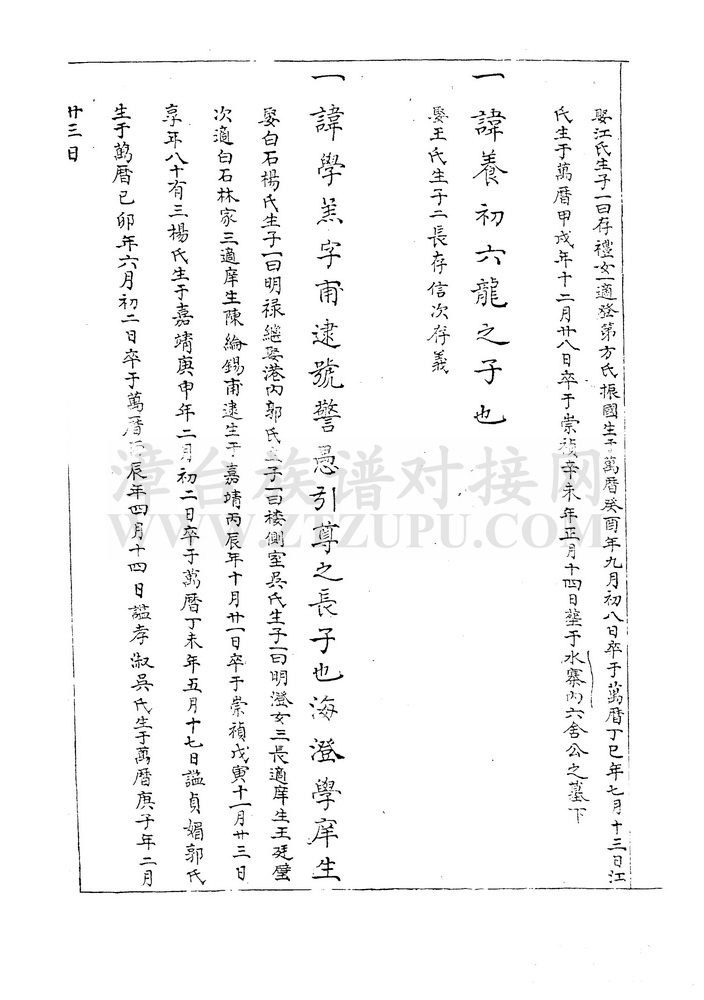 娶江氏生子一曰存禮女一適登第方氏振國生于萬曆癸酉年九月初八日卒于萬曆丁巳年七月十三日江
氏生于萬曆甲戌年十二月廿八日卒于崇禎辛未年正月十四日塟于水寨內六舍公之墓下
一諱養初六龍之子也
娶王氏生子二長存信次存義
一諱學羔字甫逮號警愚引尊之長子也海澄學庠生
娶白石楊氏生子一曰明祿繼娶港內郭氏生子一曰棲側室吳氏生子一曰明澄女三長適庠生王廷璧
次適白石林家三適庠生陳綸錫甫逮生于嘉靖丙辰年十月廿一日卒于崇禎戊寅十一月廿三日
享年八十有三楊氏生于嘉靖庚申年二月初二日卒于萬曆丁未年五月十七日諡貞媚郭氏
生于萬曆己卯年六月初二日卒于萬曆辰年四月十四日諡孝淑吳氏生于萬曆庚子年二月
廿三日
漳台族谱对接网
WWW.ZTZUPU.COM